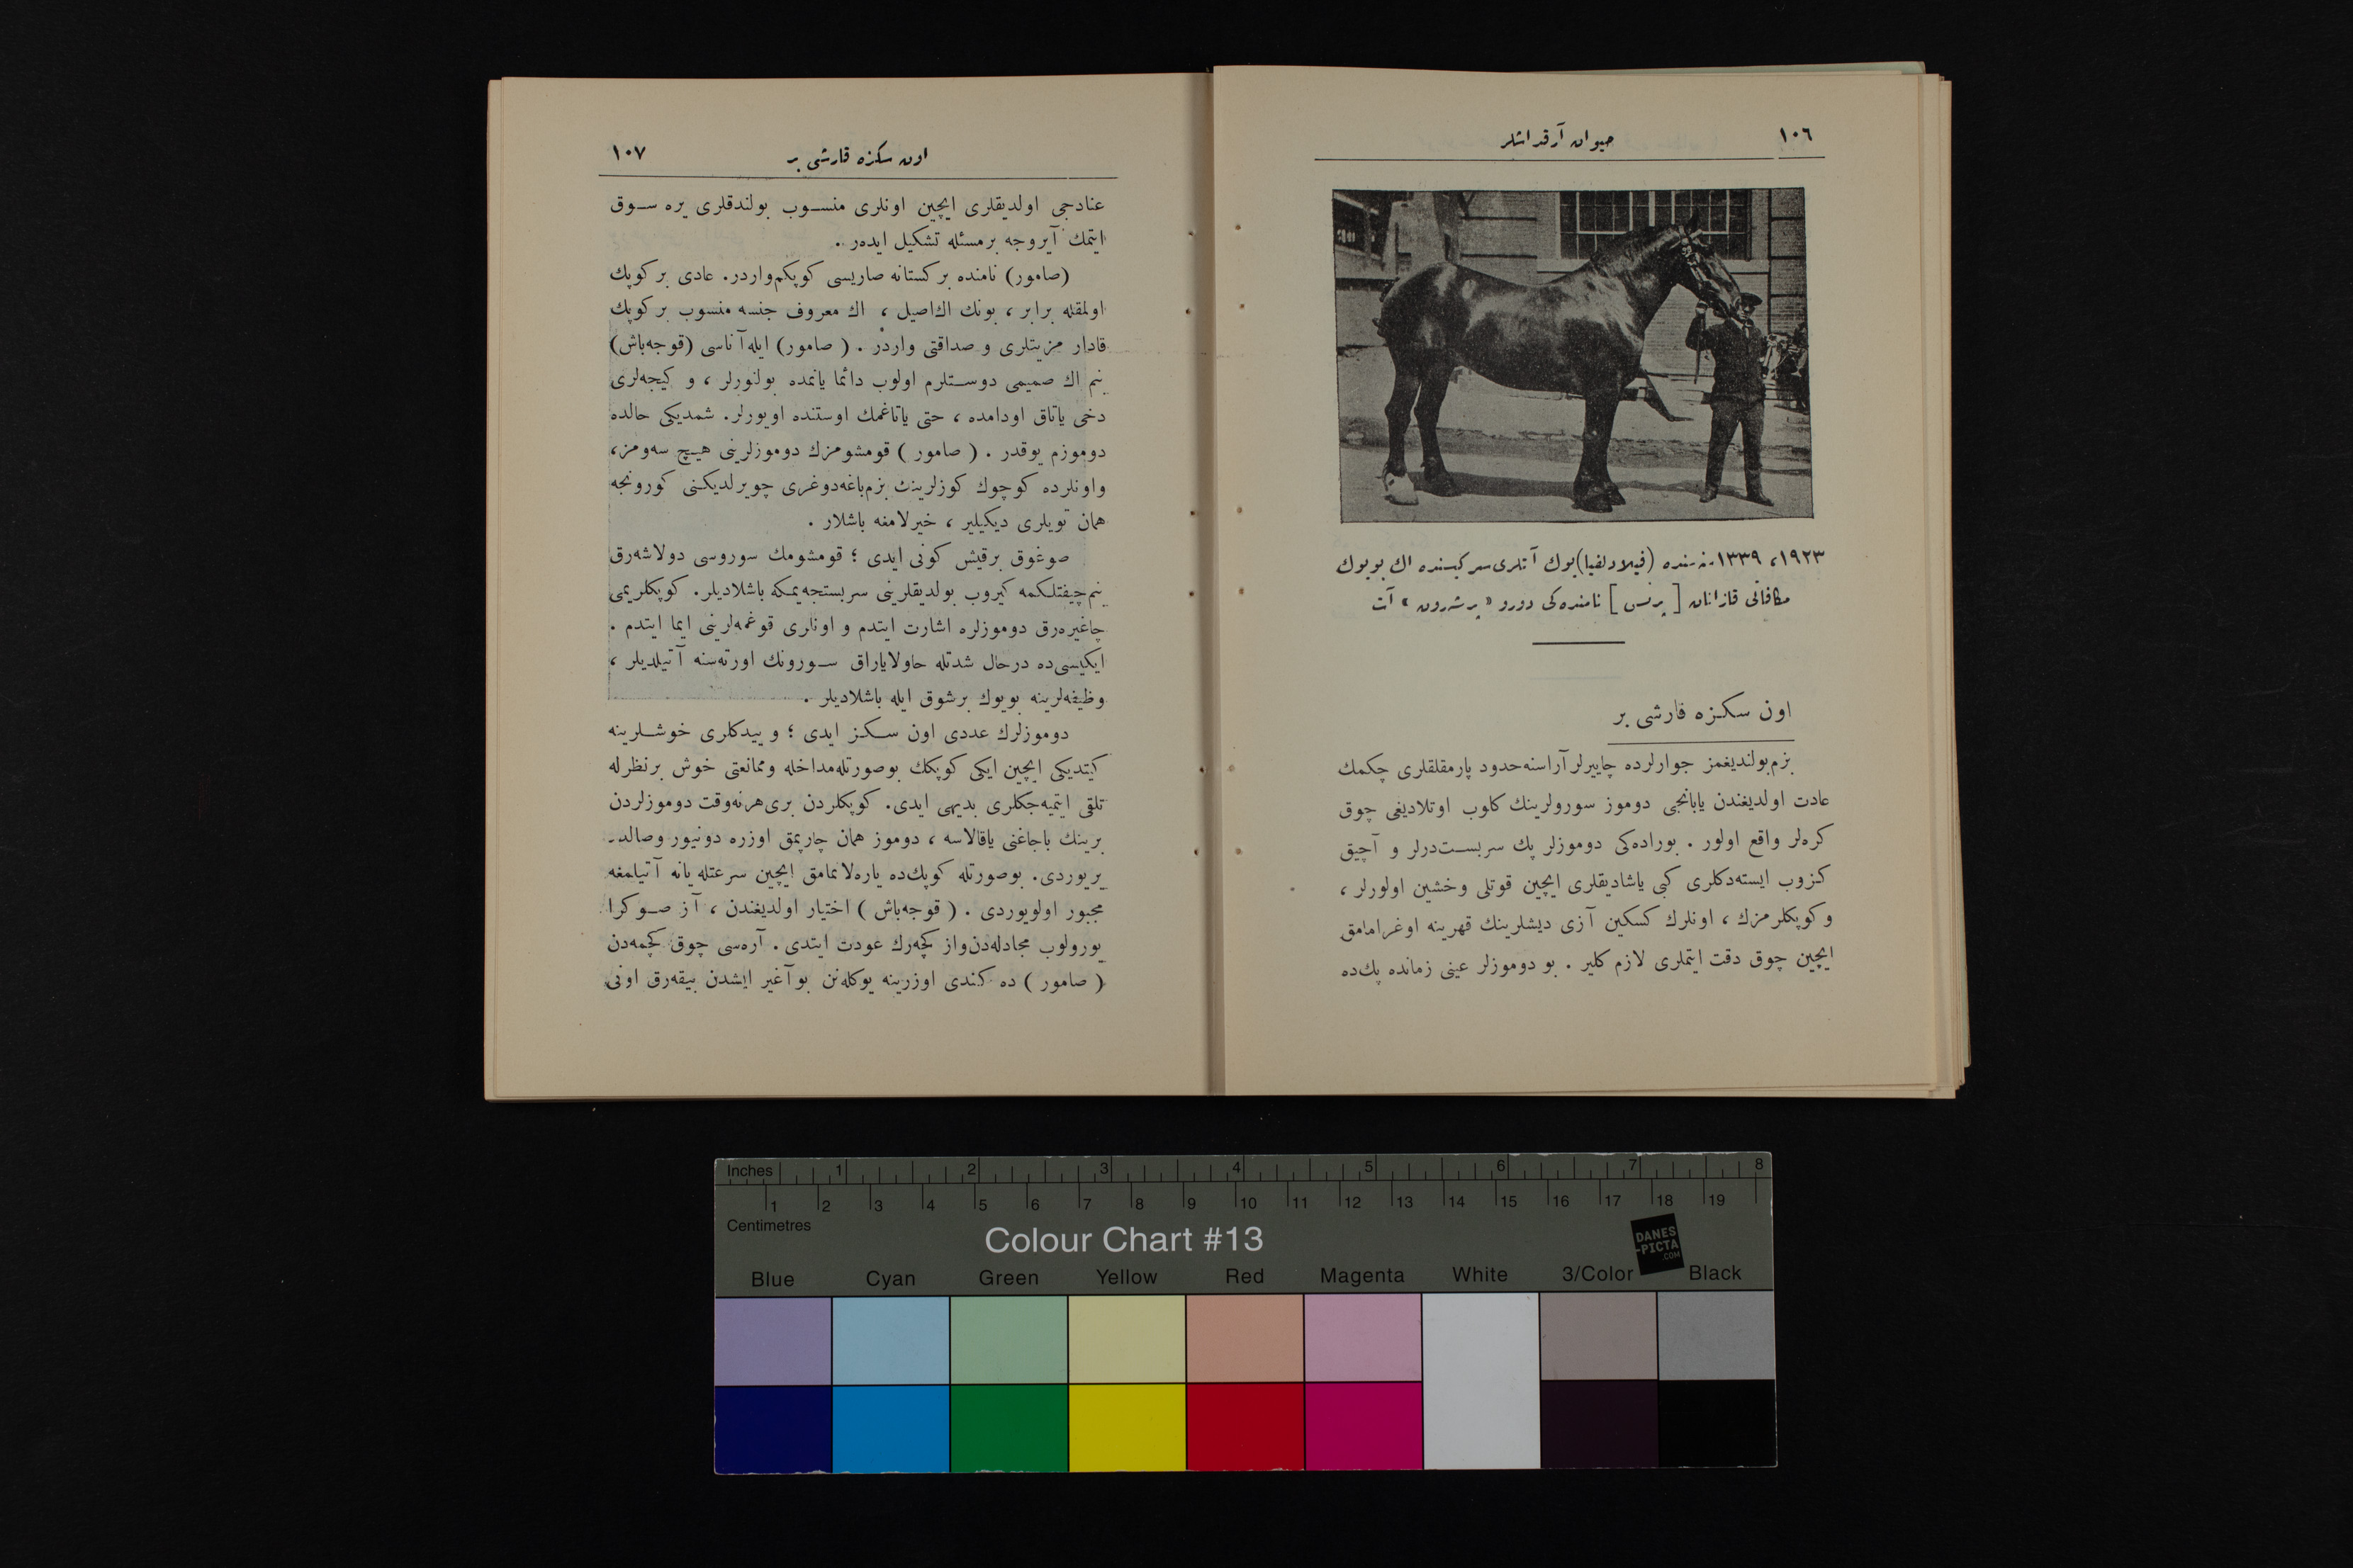 ١٠٦
حيوان آرقداشلر
١٩٢٣، ١٣٣٩ سنه‌سنده (فيلادلفيا) بوك آتلرى سركيسنده اك بويوك
مكافاتى قازانان [پرنس] نامنده‌كى دورو «پرشرون» آت
اون سكزه قارشى بر
بزم بولنديغمز جوارلرده چاييرلر آراسنه حدود پارمقلقلرى چكمك
عادت اولديغندن يابانجى دوموز سورولرينك كلوب اوتلاديغى چوق
كره‌لر واقع اولور . بوراده‌كى دوموزلر پك سربست‌درلر و آچيق
كزوب ايسته‌دكلرى كبى ياشاديقلرى ايچين قوتلى وخشين اولورلر ،
و كوپكلرمزك ، اونلرك كسكين آزى ديشلرينك قهرينه اوغرامامق
ايچين چوق دقت ايتملرى لازم كلير . بو دوموزلر عينى زمانده پك‌ده
١٠٧
اون سكزه قارشى بر
عنادجى اولديقلرى ايچين اونلرى منسوب بولندقلرى يره سوق
ايتمك آيروجه برمسئله تشكيل ايده‌ر .
(صامور) نامنده بر كستانه صاريسى كوپكم‌واردر. عادى بر كوپك
اولمقله برابر ، بونك اك‌اصيل ، اك معروف جنسه منسوب بر كوپك
قادار مزيتلرى و صداقتى واردر . ( صامور) ايله آناسى (قوجه‌باش)
بنم اك صميمى دوستلرم اولوب دائما يانمده بولنورلر ، و كيجه‌لرى
دخى ياتاق اودامده ، حتى ياتاغمك اوستنده اويورلر. شمديكى حالده
دوموزم يوقدر . ( صامور ) قومشومزك دوموزلرينى هيچ سه‌ومز،
واونلرده كوچوك كوزلرينك بزم‌باغه‌دوغرى چويرلديكنى كورونجه
همان تويلرى ديكيلير ، خيرلامغه باشلار .
صوغوق برقيش كونى ايدى ؛ قومشومك سوروسى دولاشه‌رق
بنم‌چيفتلكمه كيروب بولديقلرينى سربستجه‌يمكه باشلاديلر. كوپكلريمى
چاغيره‌رق دوموزلره اشارت ايتدم و اونلرى قوغمه‌لرينى ايما ايتدم .
ايكيسى‌ده درحال شدتله حاولاياراق سورونك اورته‌سنه آتيلديلر ،
وظيفه‌لرينه بويوك برشوق ايله باشلاديلر .
دوموزلرك عددى اون سكز ايدى ؛ و ييدكلرى خوشلرينه
كيتديكى ايچين ايكى كوپكك بوصورتله‌مداخله وممانعتى خوش برنظرله
تلقى ايتميه‌جكلرى بديهى ايدى. كوپكلردن برى‌هرنه‌وقت دوموزلردن
برينك باجاغنى ياقالاسه ، دوموز همان چارپمق اوزره دونيور وصالد-
يريوردى. بوصورتله كوپك‌ده ياره‌لانمامق ايچين سرعتله يانه آتيلمغه
مجبور اولويوردى . ( قوجه‌باش ) اختيار اولديغندن ، آز صوكرا
يورولوب مجادله‌دن‌واز كچه‌رك عودت ايتدى . آره‌سى چوق كچمه‌دن
( صامور ) ده كندى اوزرينه يوكله‌نن بوآغير ايشدن بيقه‌رق اونى
Inches 1 2 3 4 5 6 7 8
1 2 3 4 5 6 7 8 9 10 11 12 13 14 15 16 17 18 19
Centimetres
Colour Chart #13
DANES
-PICTA
.COM
Blue Cyan Green Yellow Red Magenta White 3/Color Black